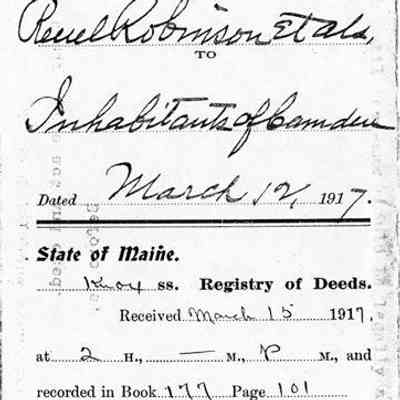 Reuel Robinson Et als,
TO
Inhabitants of Camden
Dated March 12, 1917.
State of Maine.
Knox ss. Registry of Deeds.
Received March 15 1917,
at 2 H., — M., P M., and
recorded in Book 177 Page 101